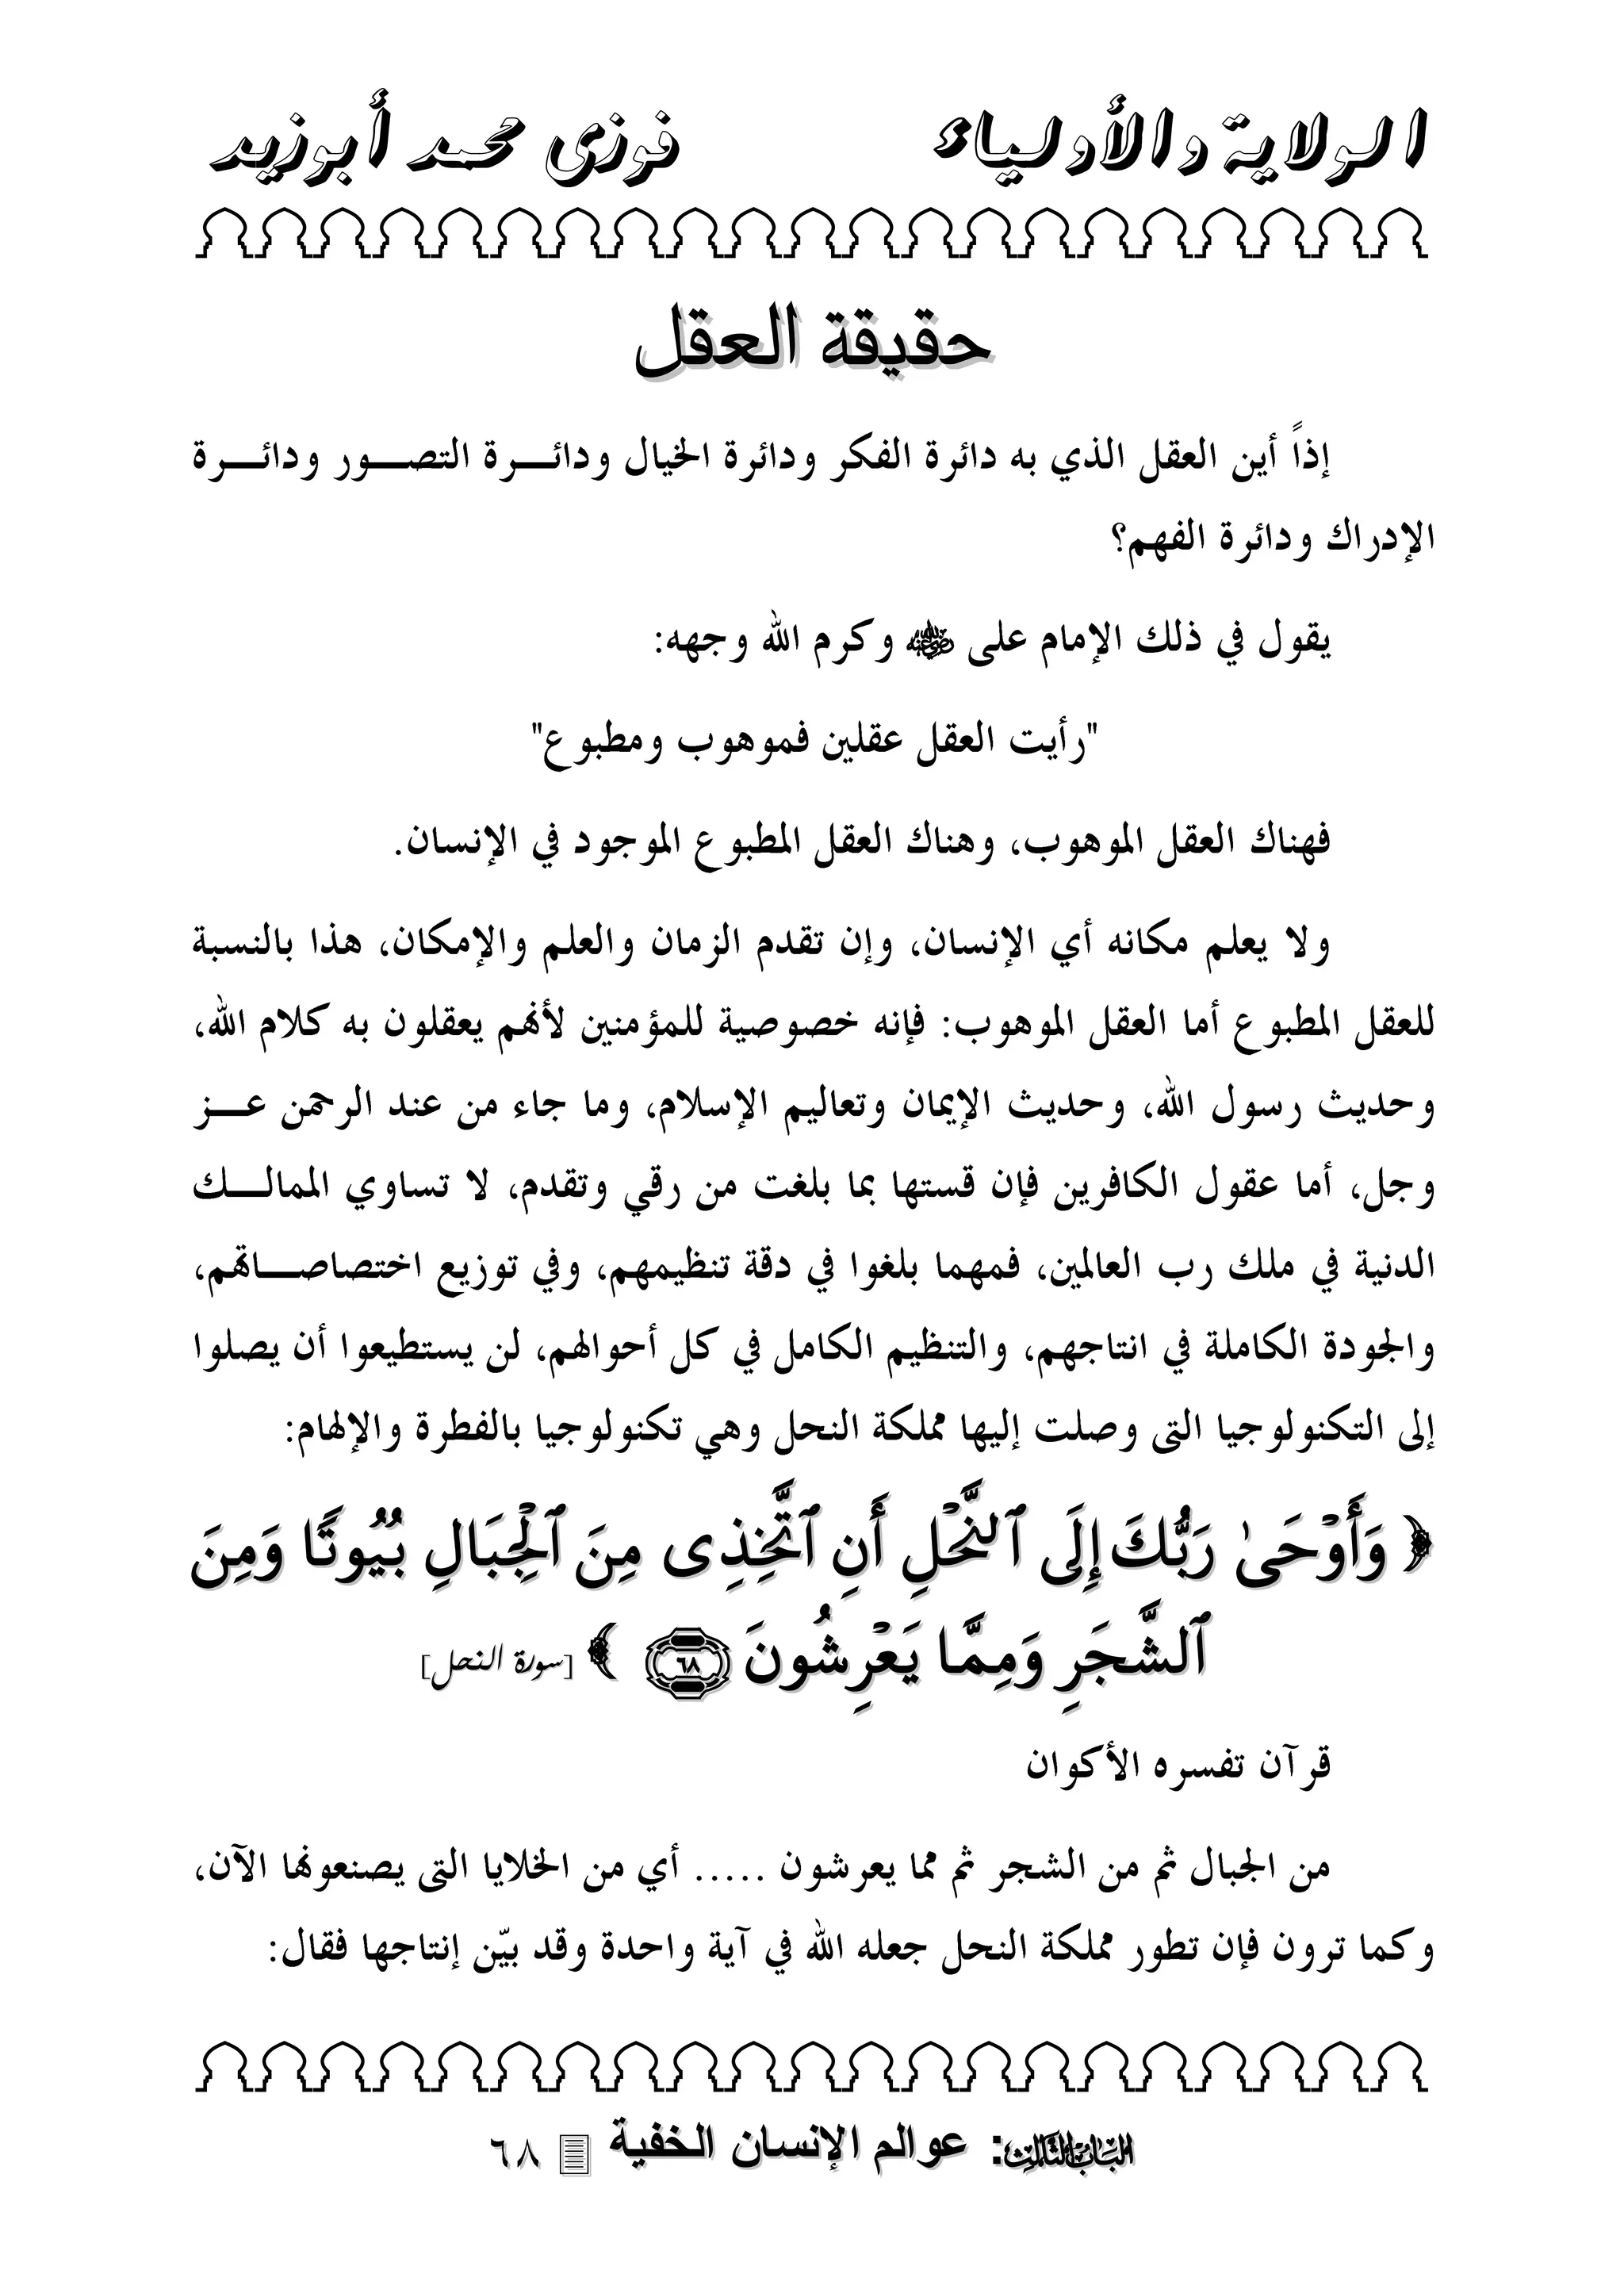 الولاية والأولياء فوزى محمد أبوزيد
حقيقة العقل
إذاً أين العقل الذي به دائرة الفكر ودائرة الخيال ودائـــرة التصـــور ودائـــرة
الإدراك ودائرة الفهم؟
يقول في ذلك الإمام على رضي الله عنه وكرم الله وجهه:
"رأيت العقل عقلين فموهوب ومطبوع"
فهناك العقل الموهوب، وهناك العقل المطبوع الموجود في الإنسان.
ولا يعلم مكانه أي الإنسان، وإن تقدم الزمان والعلم والإمكان، هذا بالنسبة
للعقل المطبوع أما العقل الموهوب: فإنه خصوصية للمؤمنين لأنهم يعقلون به كلام الله،
وحديث رسول الله، وحديث الإيمان وتعاليم الإسلام، وما جاء من عند الرحمن عـــز
وجل، أما عقول الكافرين فإن قستها بما بلغت من رقي وتقدم، لا تساوي الممالـــك
الدنية في ملك رب العالمين، فمهما بلغوا في دقة تنظيمهم، وفي توزيع اختصاصـــاتهم،
والجودة الكاملة في انتاجهم، والتنظيم الكامل في كل أحوالهم، لن يستطيعوا أن يصلوا
إلى التكنولوجيا التى وصلت إليها مملكة النحل وهي تكنولوجيا بالفطرة والإلهام:
﴿ وَأَوْحَىٰ رَبُّكَ إِلَى ٱلنَّحْلِ أَنِ ٱتَّخِذِى مِنَ ٱلْجِبَالِ بُيُوتًا وَمِنَ
ٱلشَّجَرِ وَمِمَّا يَعْرِشُونَ ٦٨ ﴾ [سورة النحل]
قرآن تفسره الأكوان
من الجبال ثم من الشجر ثم مما يعرشون ..... أي من الخلايا التى يصنعونها الآن،
وكما ترون فإن تطور مملكة النحل جعله الله في آية واحدة وقد بيّن إنتاجها فقال:
الباب الثالث: عوالم الإنسان الخفية ٦٨